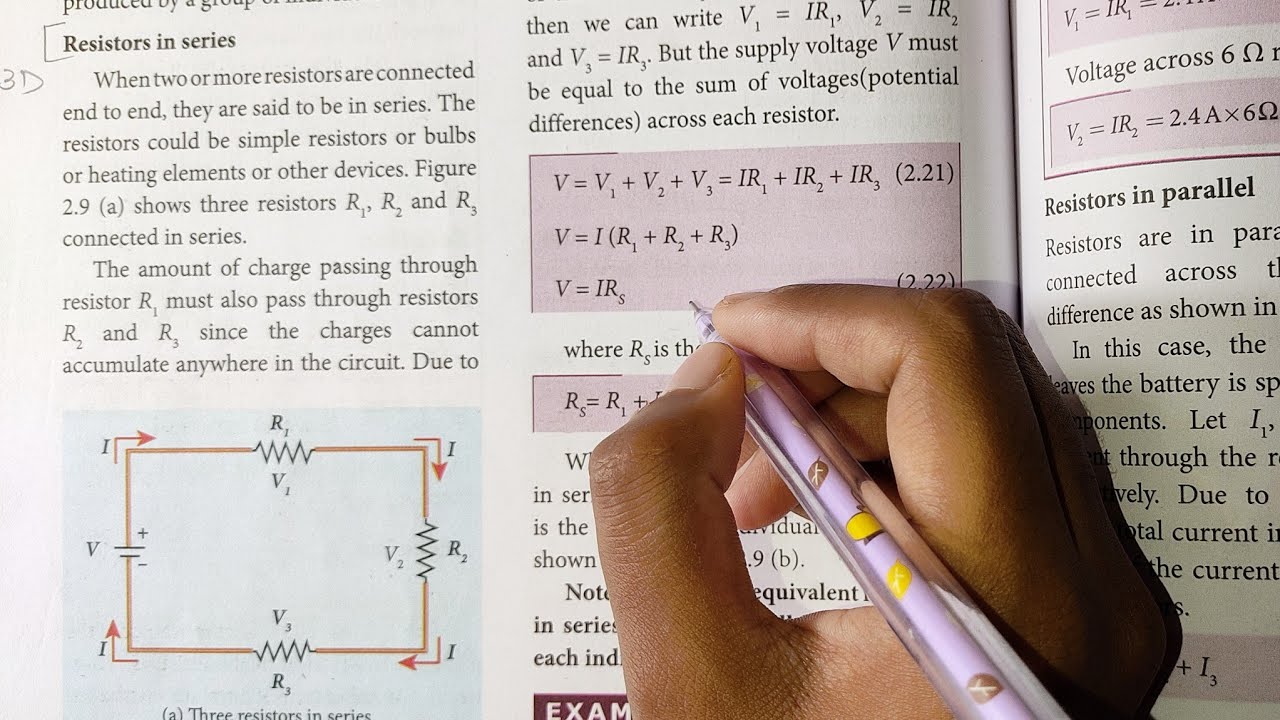 produced by a group of
Resistors in series
3D
When two or more resistors are connected
end to end, they are said to be in series. The
resistors could be simple resistors or bulbs
or heating elements or other devices. Figure
2.9 (a) shows three resistors R₁, R₂ and R₃
connected in series.
The amount of charge passing through
resistor R₁ must also pass through resistors
R₂ and R₃ since the charges cannot
accumulate anywhere in the circuit. Due to
R₁
I
I
V₁
V
+
-
V₂
R₂
V₃
I
I
R₃
(a) Three resistors in series
then we can write V₁ = IR₁, V₂ = IR₂
and V₃ = IR₃. But the supply voltage V must
be equal to the sum of voltages(potential
differences) across each resistor.
V = V₁ + V₂ + V₃ = IR₁ + IR₂ + IR₃ (2.21)
V = I (R₁ + R₂ + R₃)
V = IRₛ (2.22)
where Rₛ is
Rₛ = R₁ +
in
is the
shown .9 (b).
equivalent
in series
each
EXAM
V₁ = IR₁ =
Voltage across 6 Ω
V₂ = IR₂ = 2.4 A × 6 Ω
Resistors in parallel
Resistors are in
connected across
difference as shown in
In this case, the
the battery is
Let I₁,
through the
Due to
current
the current
+ I₃